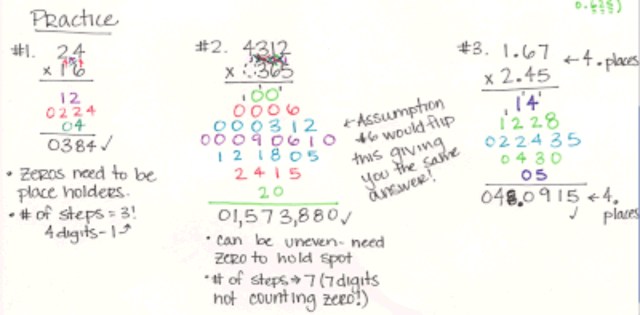 Practice
#1. 24
x 16
12
0224
04
0384✓
• Zeros need to be
place holders.
• # of steps = 3!
4 digits-1
#2. 4312
x 365
100
0006
000312
00090610
121805
2415
20
01,573,880✓
• can be uneven- need
zero to hold spot
• # of steps → 7 (7 digits
not counting zero!)
←Assumption
would flip
this giving
you the same
answer!
#3. 1.67 ← 4. places
x 2.45
14
1228
022435
0430
05
048.0915 ← 4.
✓ places